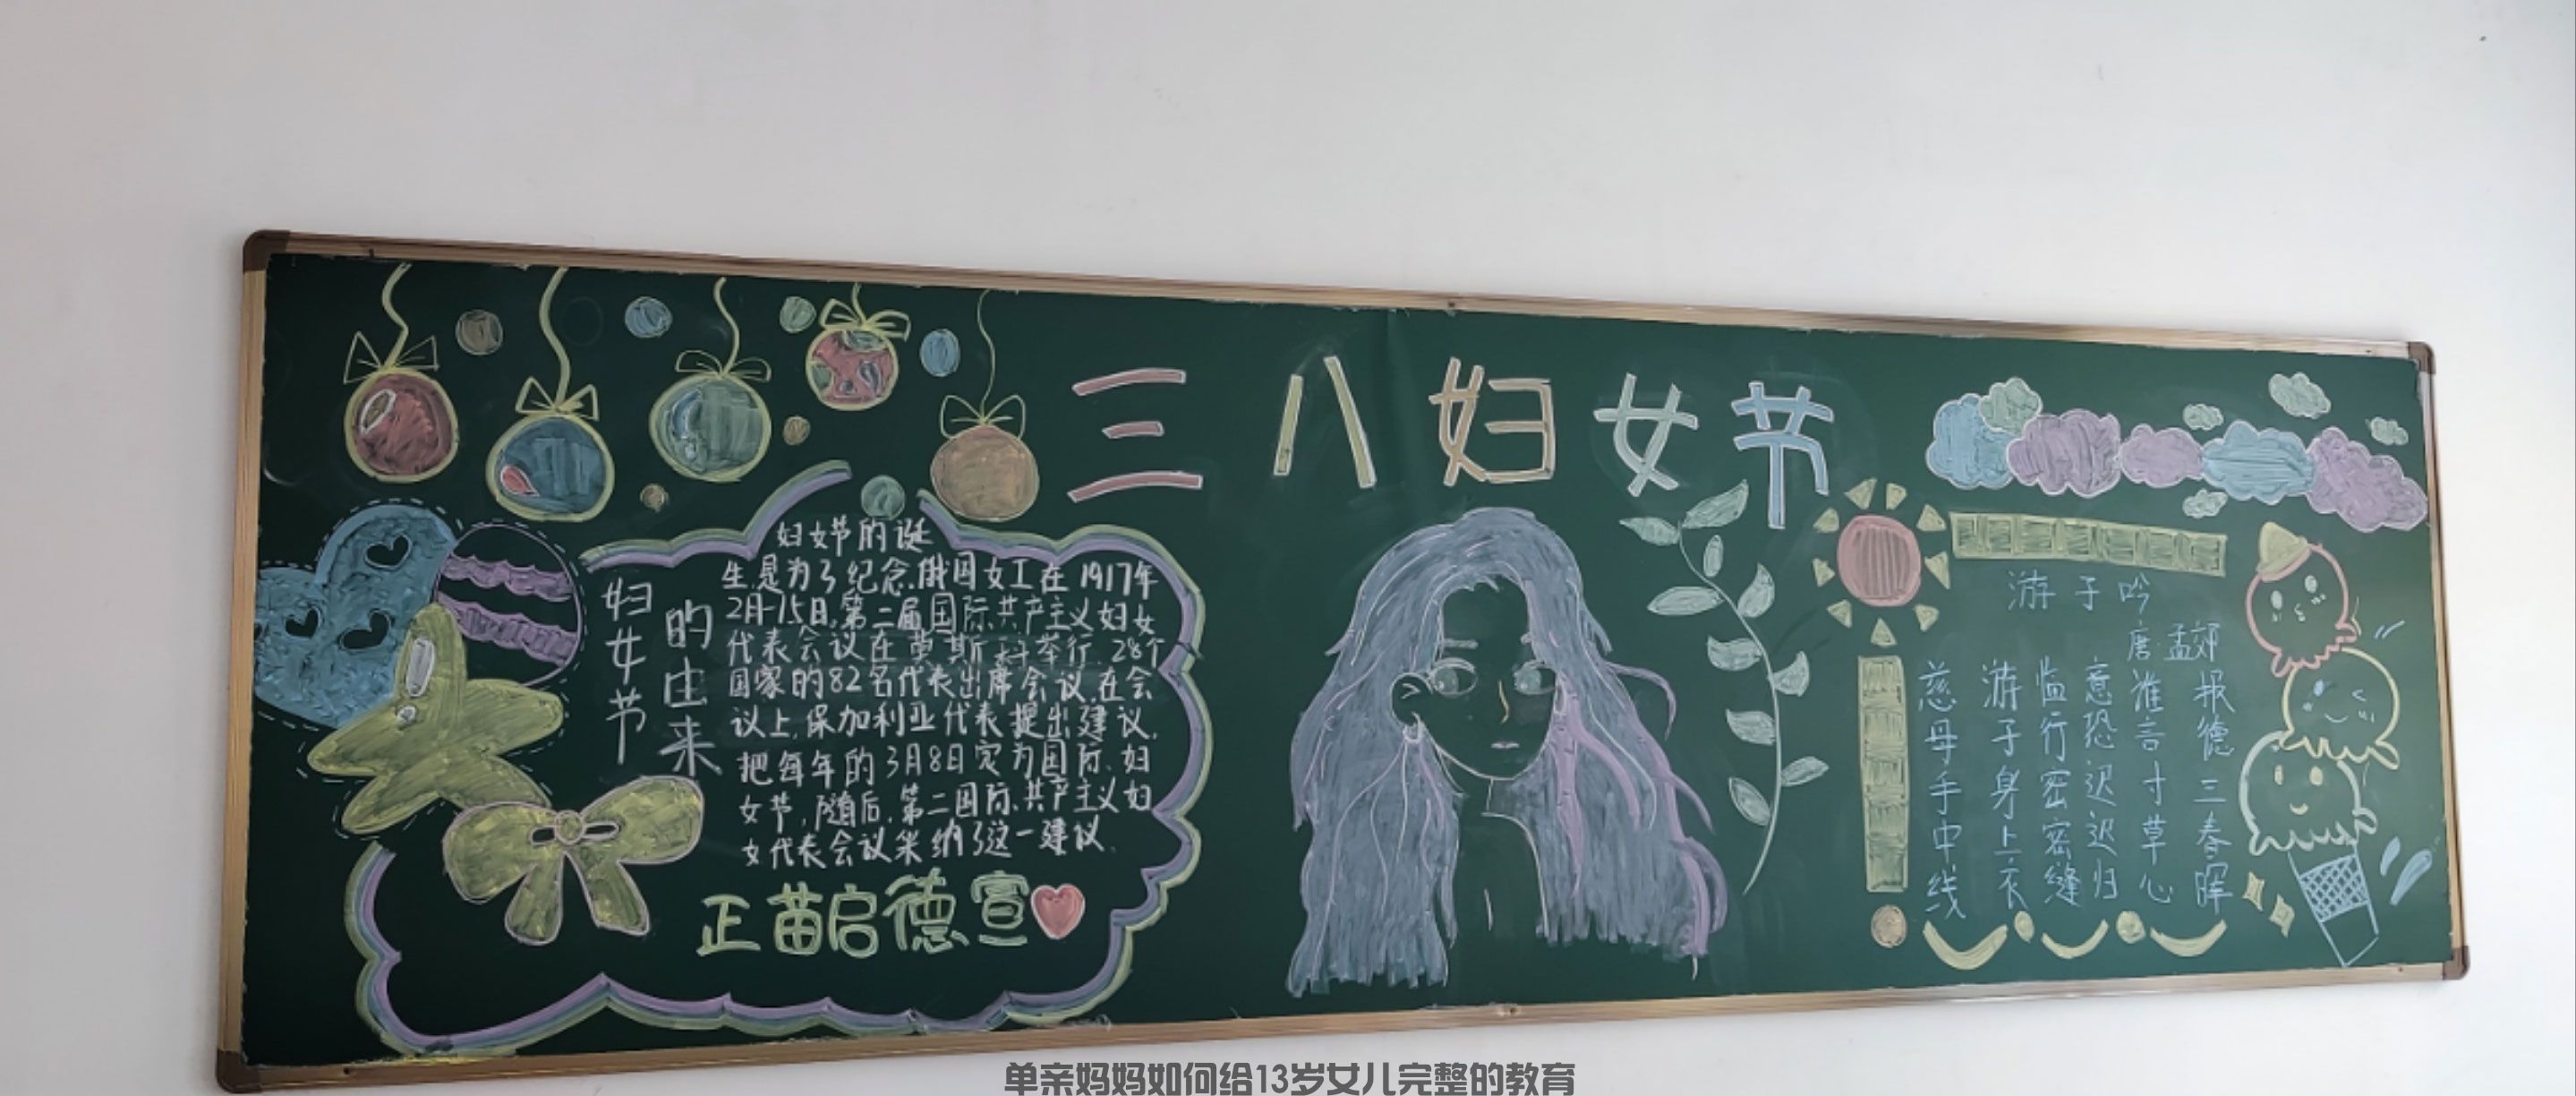 三八妇女节
妇女节
的由来
妇女节的诞
生是为了纪念俄国女工在1917年
2月15日,第二届国际共产主义妇女
代表会议在莫斯科举行 28个
国家的82名代表出席会议,在会
议上,保加利亚代表提出建议,
把每年的3月8日定为国际妇
女节,随后,第二国际共产主义妇
女代表会议采纳了这一建议.
正苗启德宣
游子吟
唐 孟郊
慈母手中线
游子身上衣
临行密密缝
意恐迟迟归
谁言寸草心
报德三春晖
单亲妈妈如何给13岁女儿完整的教育